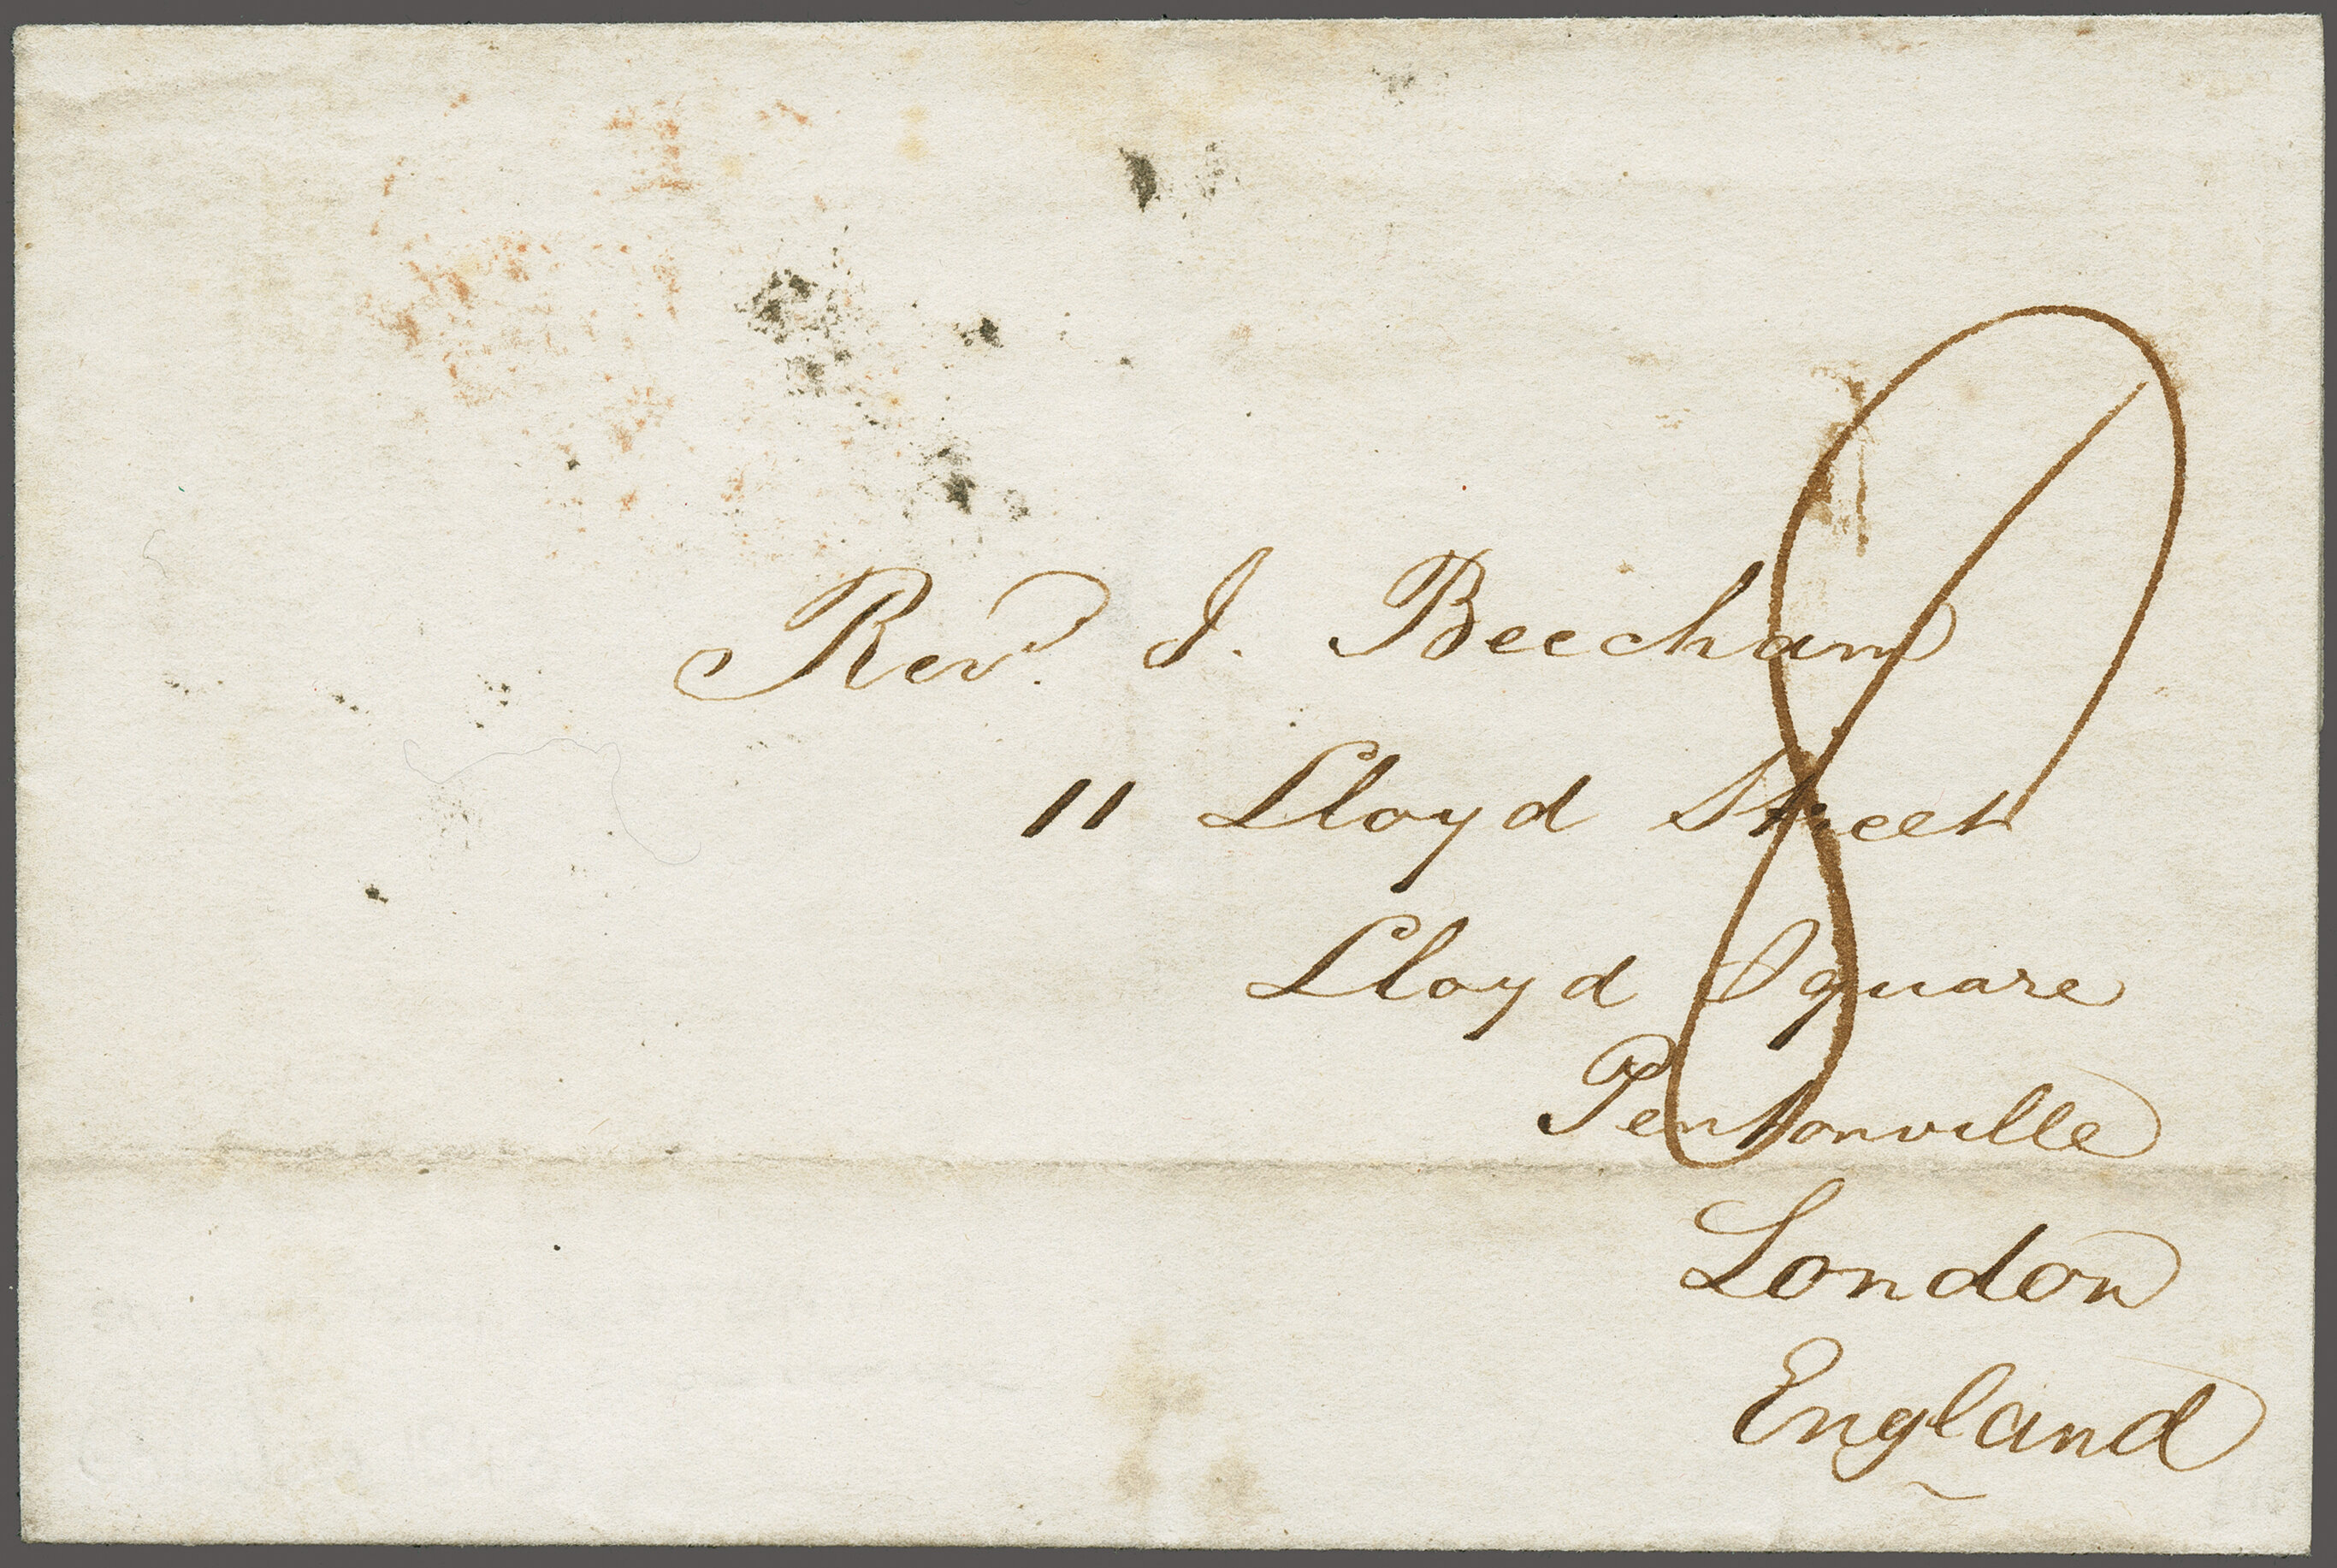 Revd. J. Beecham
11 Lloyd Street
Lloyd Square
Pentonville
London
England
8